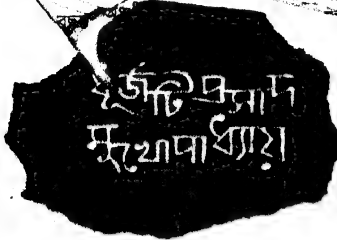 ধূর্জটি প্রসাদ
মুখোপাধ্যায়